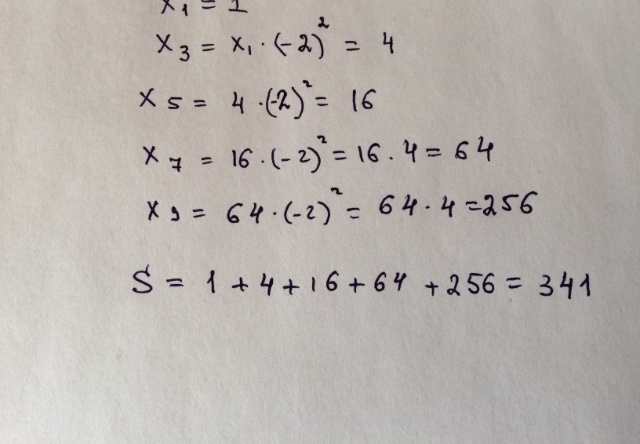 x₁ = 1
x₃ = x₁ · (-2)² = 4
x₅ = 4 · (-2)² = 16
x₇ = 16 · (-2)² = 16 · 4 = 64
x₉ = 64 · (-2)² = 64 · 4 = 256
S = 1 + 4 + 16 + 64 + 256 = 341